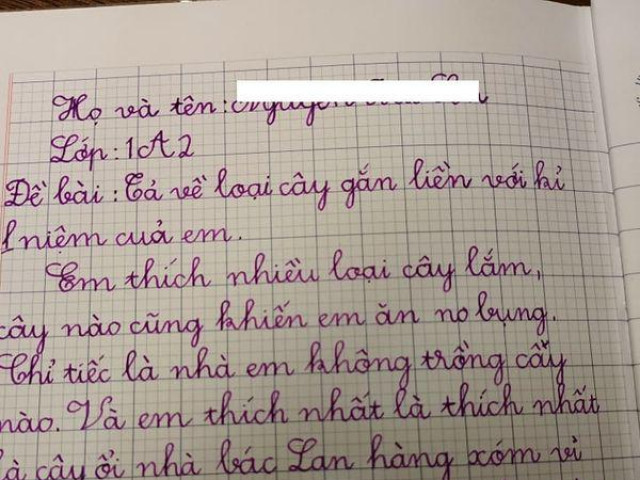 Họ và tên: Nguyễn
Lớp: 1A2
Đề bài: Tả về loại cây gắn liền với kỉ
niệm cuả em.
Em thích nhiều loại cây lắm,
cây nào cũng khiến em ăn no bụng.
Chỉ tiếc là nhà em không trồng cây
nào. Và em thích nhất là thích nhất
là cây ổi nhà bác Lan hàng xóm vì